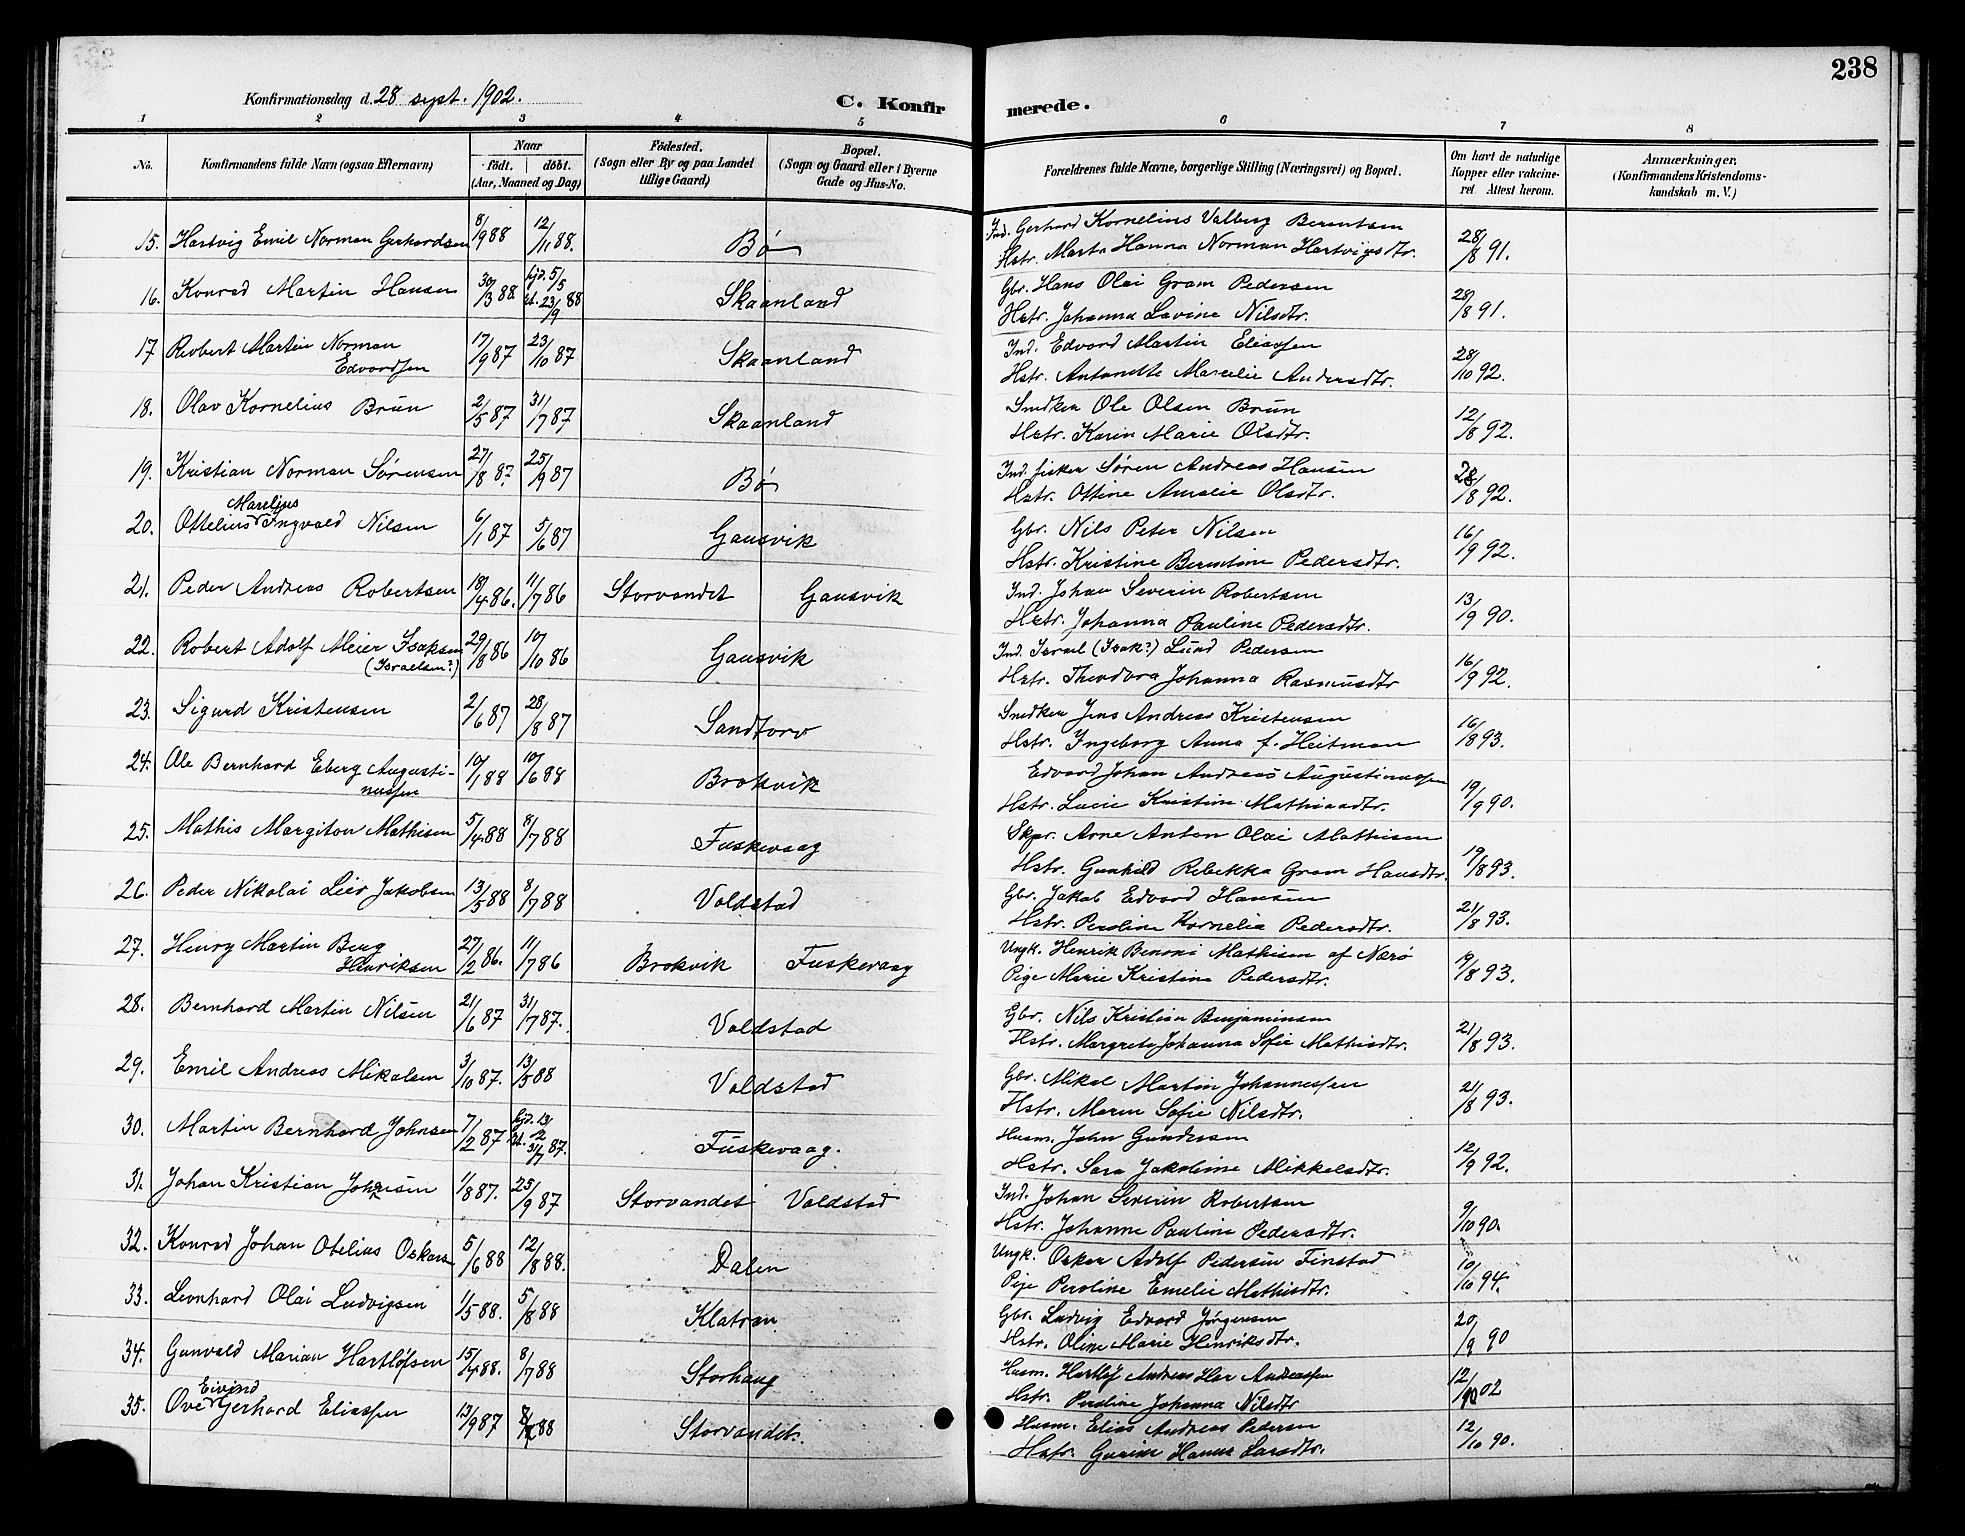 238
Konfirmationsdag d. 28 sept. 1902.
C. Konfirmerede.
1 2 3 4 5 6 7 8
No. Konfirmandens fulde Navn (ogsaa Efternavn) Naar født. døbt. (Aar, Maaned og Dag) Fødested. (Sogn eller By og paa Landet tillige Gaard) Bopæl. (Sogn og Gaard eller i Byerne Gade og Hus-No. Forældrenes fulde Navne, borgerlige Stilling (Næringsvei) og Bopæl. Om havt de naturlige Kopper eller vakcineret. Attest herom. Anmærkninger, (Konfirmandens Kristendomskundskab m. V.)
15. Hartvig Emil Norman Gerhardsen 8/9 88 12/11 88. Bø Ind. Gerhard Kornelius Valberg Berentsen
Hstr. Marta Hanna Norman Hartvigsdtr. 28/8 91.
16. Konrad Martin Hansen 30/3 88 hjd. 5/5 st. 23/9 88 Skaanland Gbr. Hans Olai Gram Pedersen
Hstr. Johanna Lavine Nilsdtr. 28/8 91.
17 Robert Martin Norman Edvardsen 17/9 87 23/10 87 Skaanland Ind. Edvard Martin Eliassen
Hstr. Antonette Marcelie Andersdtr. 28/10 92.
18. Olav Kornelius Brun 2/5 87 31/7 87 Skaanland Snedker Ole Olsen Brun
Hstr. Karin Marie Olsdtr. 12/8 92.
19. Kristian Norman Sørensen 27/8 87. 25/9 87 Bø Ind. fisker Søren Andreas Hansen
Hstr. Ottine Amalie Olsdtr. 28/8 92.
20. Ottelius Marelius Ingvald Nilsen 6/1 87 5/6 87 Gausvik Gbr. Nils Peter Nilsen
Hstr. Kristine Berntine Pedersdtr. 16/9 92.
21. Peder Andreas Robertsen 18/4 86. 11/7 86 Storvandet Gausvik Ind. Johan Severin Robertsen
Hstr. Johanna Pauline Pedersdtr. 13/9 90.
22. Robert Adolf Meier Isaksen (Israelsen?) 29/8 86 10/10 86 Gausvik Ind. Israel (Isak?) Lund Pedersen
Hstr. Theodora Johanna Rasmusdtr 16/9 92.
23. Sigurd Kristensen 2/6 87 28/8 87 Sandtorv Snedker Jens Andreas Kristensen
Hstr. Ingeborg Anna f. Heitman 16/8 93.
24. Ole Bernhard Eberg Augustinussen 10/1 88 10/6 88 Brokvik Edvard Johan Andreas Augustinussen
Hstr. Lucie Kristine Mathiasdtr. 19/9 90.
25. Mathis Margiton Mathisen 5/4 88 8/7 88 Fuskevaag Skpr. Arne Anton Olai Mathisen
Hstr. Gunhild Rebekka Gram Hansdtr. 19/8 93.
26. Peder Nikolai Lier Jakobsen 13/5 88 8/7 88 Voldstad Gbr. Jakob Edvard Hansen
Hstr. Peroline Kornelia Pedersdtr. 21/8 93.
27. Henry Martin Berg Henriksen 27/2 86. 11/7 86 Brokvik Fuskevaag Ungk. Henrik Benoni Mathisen af Nærø
Pige Marie Kristine Pedersdtr. 19/8 93.
28. Bernhard Martin Nilsen 21/6 87 31/7 87. Voldstad Gbr. Nils Kristian Benjaminsen
Hstr. Margrete Johanna Sofie Mathisdtr. 21/8 93.
29. Emil Andreas Mikalsen 3/10 87. 13/5 88 Voldstad Gbr. Mikal Martin Johannessen
Hstr. Maren Sofie Nilsdtr. 21/8 93.
30. Martin Bernhard Johnsen 7/2 87 hjd. 13/2 st. 31/7 87. Fuskevaag. Husm. John Gundersen
Hstr. Sara Jakobine Mikkelsdtr. 12/9 92.
31. Johan Kristian Johnsen 1/8 87. 25/9 87 Storvandet Voldstad Ind. Johan Severin Robertsen
Hstr. Johanne Pauline Pedersdtr. 9/10 90.
32. Konrad Johan Otelius Oskars. 5/6 88 12/8 88. Dalen Ungk. Oskar Adolf Pedersen Finstad
Pige Peroline Emelie Mathisdtr. 10/10 94.
33. Leonhard Olai Ludvigsen 1/5 88. 5/8 88 Klatran Gbr. Ludvig Edvard Jørgensen
Hstr. Oline Marie Henriksdtr. 20/9 90
34. Gunvald Marian Hartløfsen 15/4 88. 8/7 88 Storhaug Husm. Hartløf Andreas Har Andreassen
Hstr. Peroline Johanna Nilsdtr 12/9 02
35. Ove Eivind Gerhard Eliassen 13/9 87 88 Storvandet. Husm. Elias Andreas Pedersen
Hstr. Gurine Hanna Larsdtr. 12/10 90.